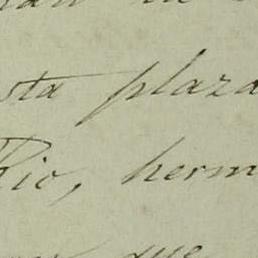 sta plaza
Rio, herm
que